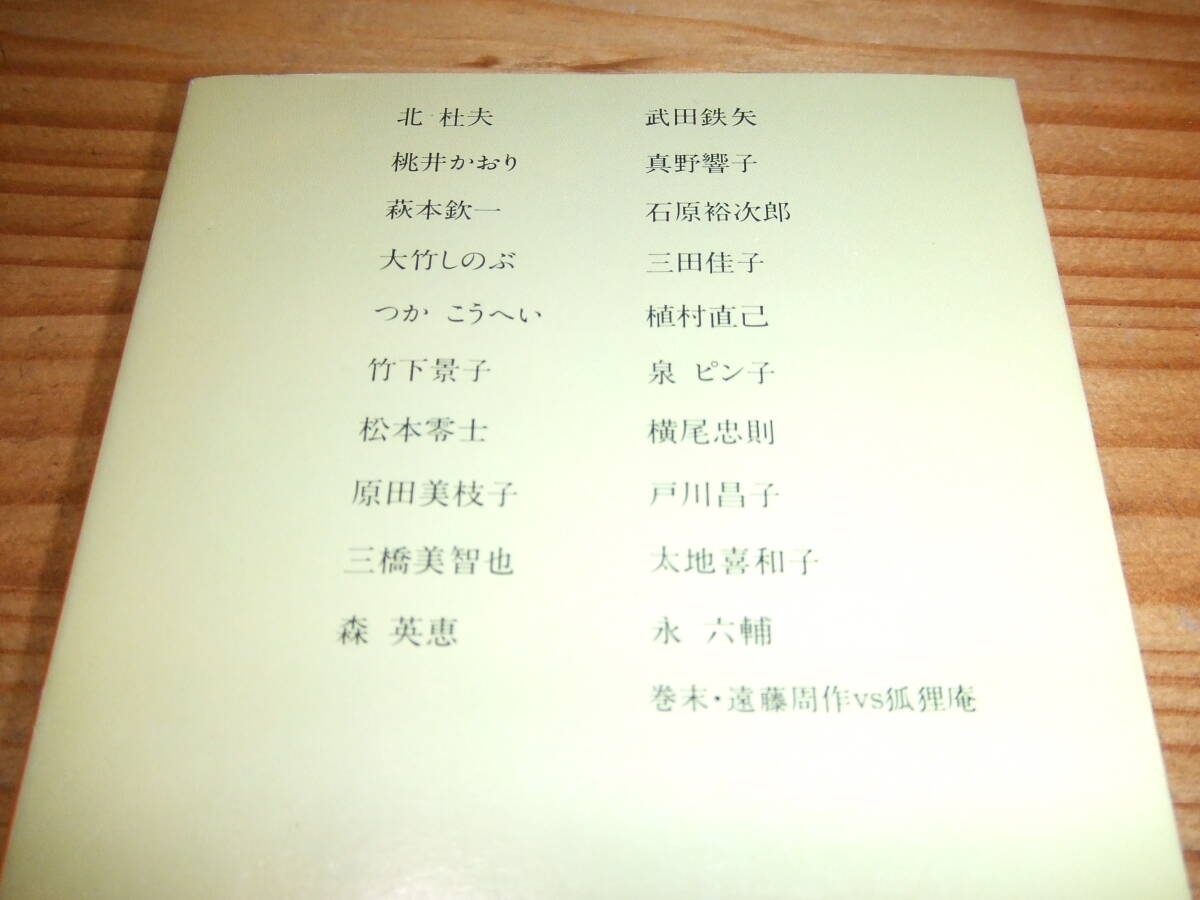 北 杜夫 武田鉄矢
桃井かおり 真野響子
萩本欽一 石原裕次郎
大竹しのぶ 三田佳子
つか こうへい 植村直己
竹下景子 泉 ピン子
松本零士 横尾忠則
原田美枝子 戸川昌子
三橋美智也 太地喜和子
森 英恵 永 六輔
巻末・遠藤周作vs狐狸庵